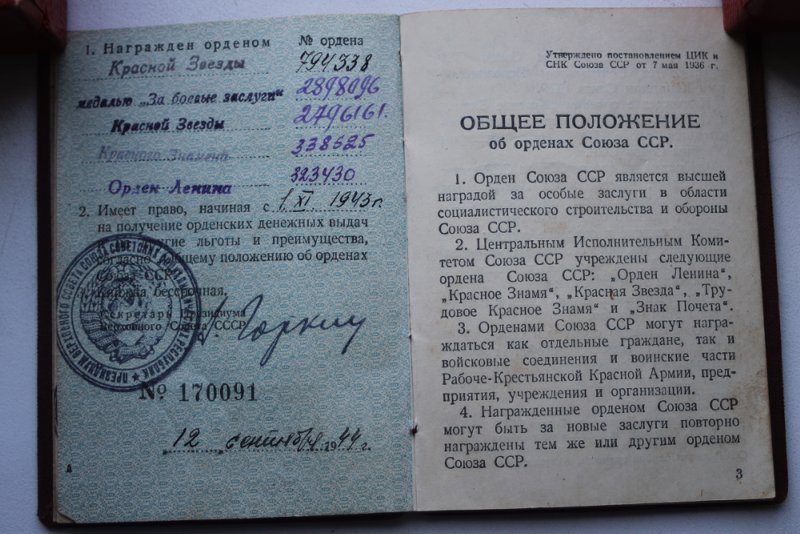 1. Награжден орденом № ордена
Красной Звезды 794338
медалью „За боевые заслуги“ 2898096
Красной Звезды 2796161.
Красного Знамени 338625
Орден Ленина 323430
2. Имеет право, начиная с 1. XI 1943 г.
на получение орденских денежных выдач
льготы и преимущества,
согласно общему положению об орденах
Союза ССР.
Книжка бессрочная.
Секретарь Президиума
Верховного Совета СССР
А. Горкин
№ 170091
12 сентября 1944 г.
А
Утверждено постановлением ЦИК и
СНК Союза ССР от 7 мая 1936 г.
ОБЩЕЕ ПОЛОЖЕНИЕ
об орденах Союза ССР.
1. Орден Союза ССР является высшей
наградой за особые заслуги в области
социалистического строительства и обороны
Союза ССР.
2. Центральным Исполнительным Коми-
тетом Союза ССР учреждены следующие
ордена Союза ССР: „Орден Ленина“,
„Красное Знамя“, „Красная Звезда“, „Тру-
довое Красное Знамя“ и „Знак Почета“.
3. Орденами Союза ССР могут награ-
ждаться как отдельные граждане, так и
войсковые соединения и воинские части
Рабоче-Крестьянской Красной Армии, пред-
приятия, учреждения и организации.
4. Награжденные орденом Союза ССР
могут быть за новые заслуги повторно
награждены тем же или другим орденом
Союза ССР.
3